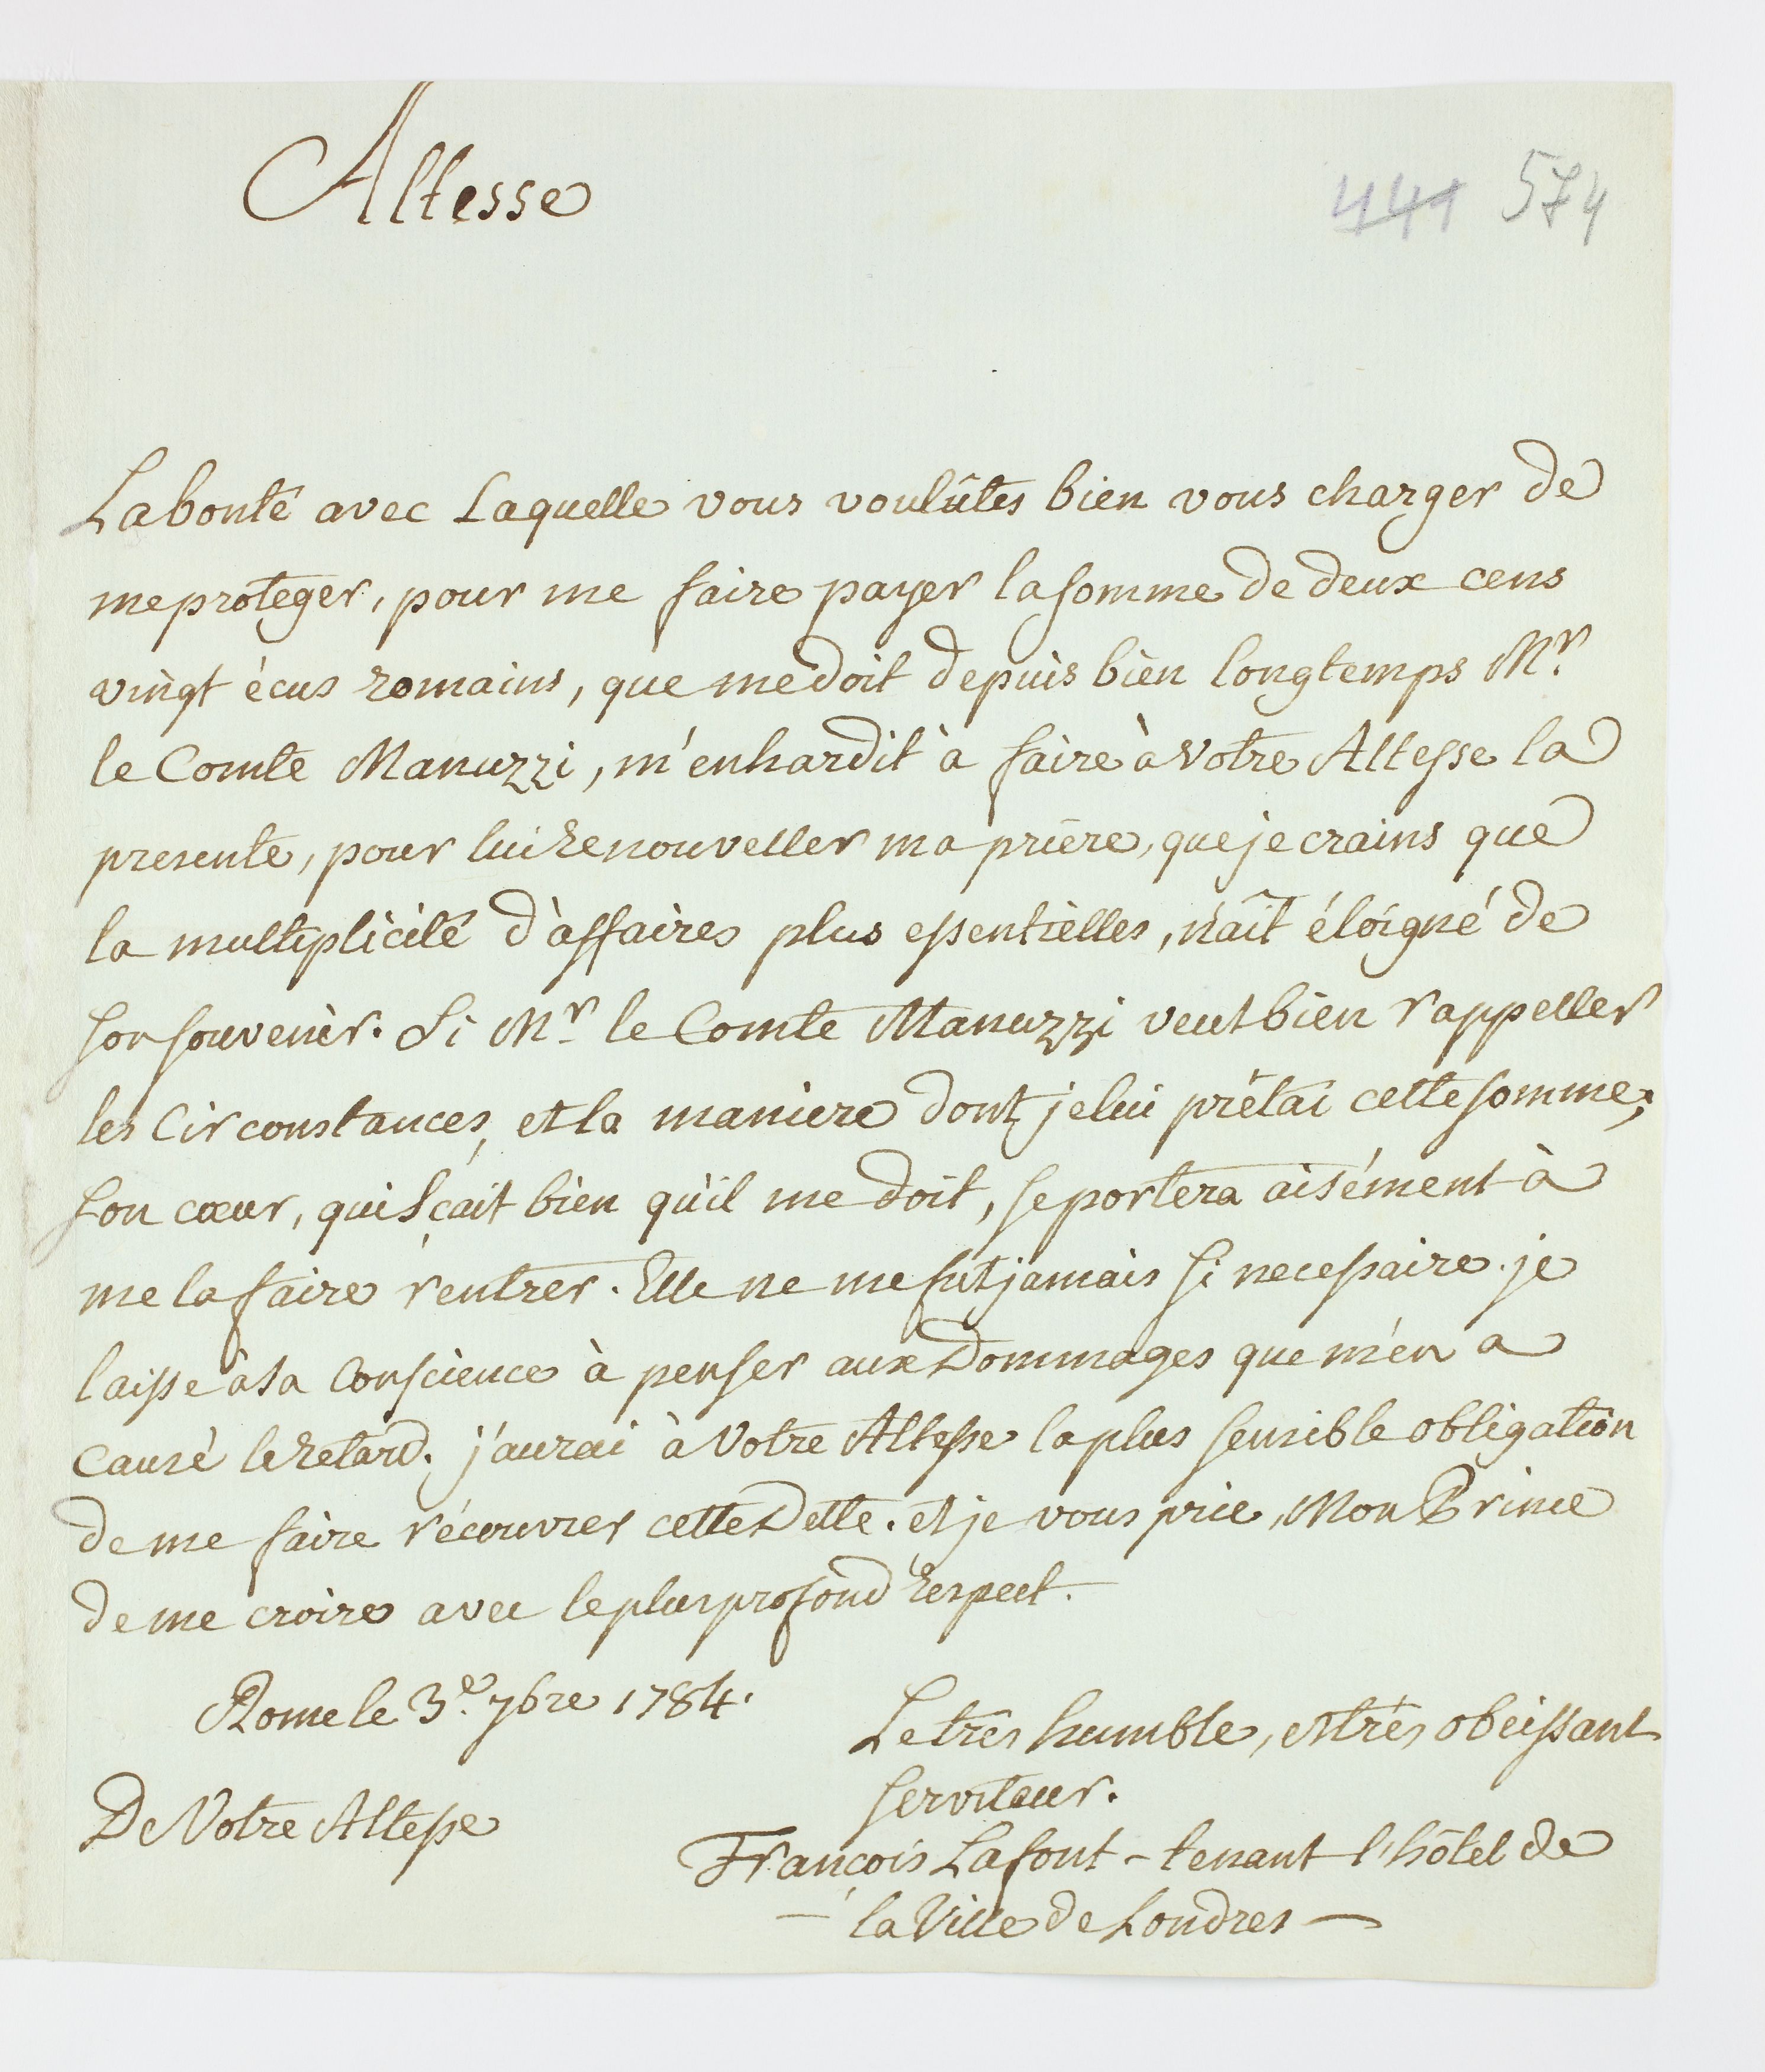 Altesse
441 574
La bonté avec Laquelle vous voulûtes bien vous charger de
me proteger, pour me faire payer la somme de deux cens
vingt écus romains, que me doit depuis bien longtemps Mr.
le Comte Manuzzi, m'enhardit à faire à Votre Altesse la
presente, pour lui renouveller ma prière, que je crains que
la multiplicité d'affaires plus essentielles, n'aît éloigné de
son souvenir. Si Mr le Comte Manuzzi veut bien rappeller
les Circonstances, et la maniere dont je lui prêtai cette somme;
son cœur, qui sçait bien qu'il me doit, se portera aisément à
me la faire rentrer. Elle ne me fut jamais si necessaire. je
laisse à sa Conscience à penser aux Dommages que m'en a
causé le retard. j'aurai à Votre Altesse la plus sensible obligation
de me faire récouvrer cette Dette. et je vous prie, Mon Prince
de me croire avec le plus profond respect.
Rome le 3e. 7bre 1784.
Le très humble, et très obeissant
serviteur.
De Votre Altesse
François Lafont - tenant l'hôtel de
— la Ville de Londres —